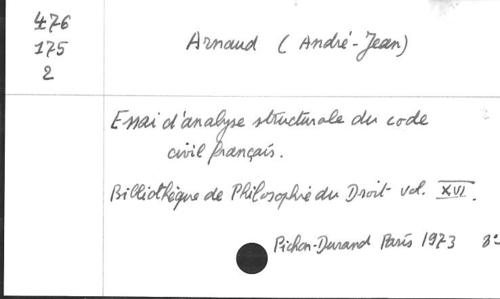 476
175
2
Arnaud (André-Jean)
Essai d'analyse structurale du code
civil français.
Bibliothèque de Philosophie du Droit vol. XVI.
Pichon-Durand Paris 1973 8°